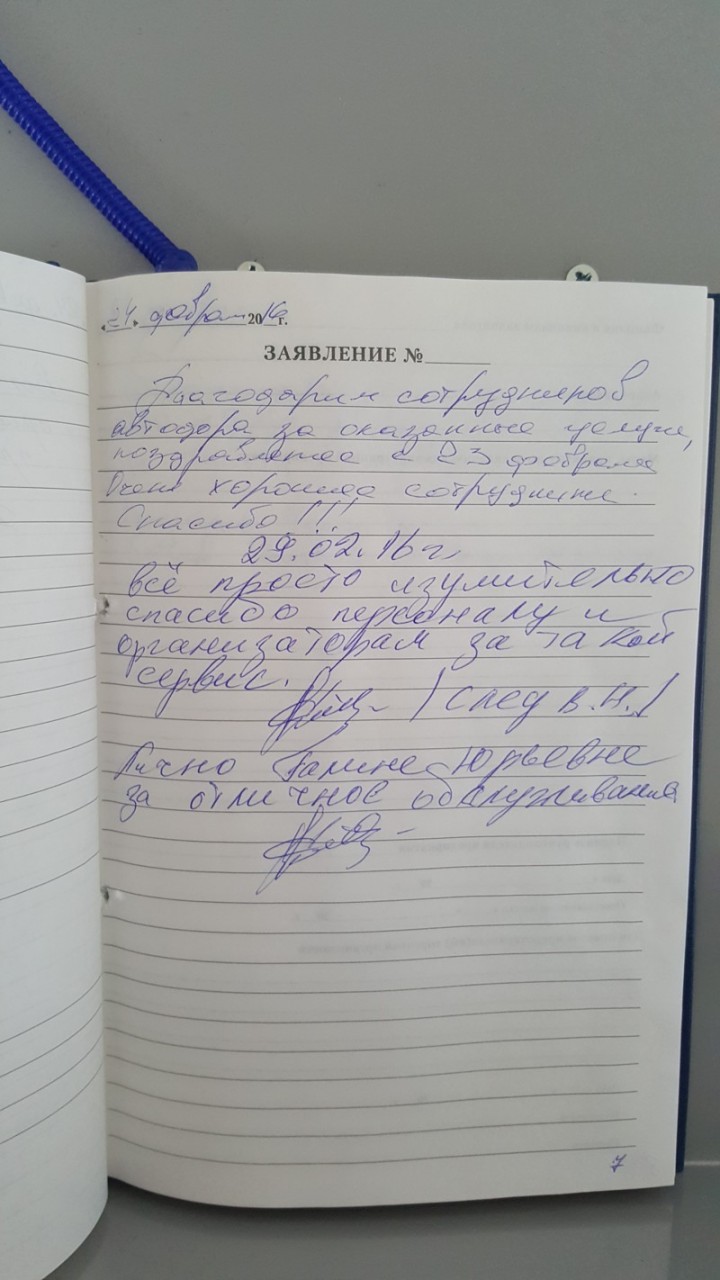 «24» февраля 2016 г.
ЗАЯВЛЕНИЕ №
Благодарим сотрудников
автодора за оказанные услуги,
поздравляем с 23 февраля
Очень хорошие сотрудники.
Спасибо!!!
29.02.16 г.
всё просто изумительно
спасибо персоналу и
организаторам за такой
сервис.
/след в.н./
Лично Галине Юрьевне
за отличное обслуживания
7